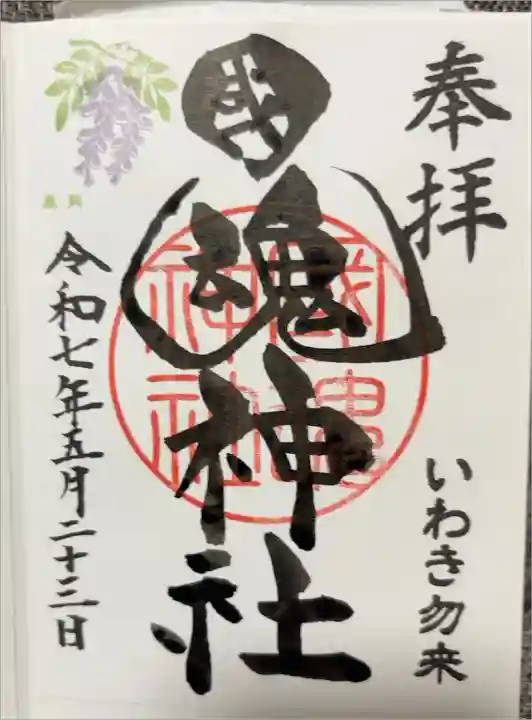 奉拝
いわき勿来
國魂神社
國魂
神社
令和七年五月二十三日